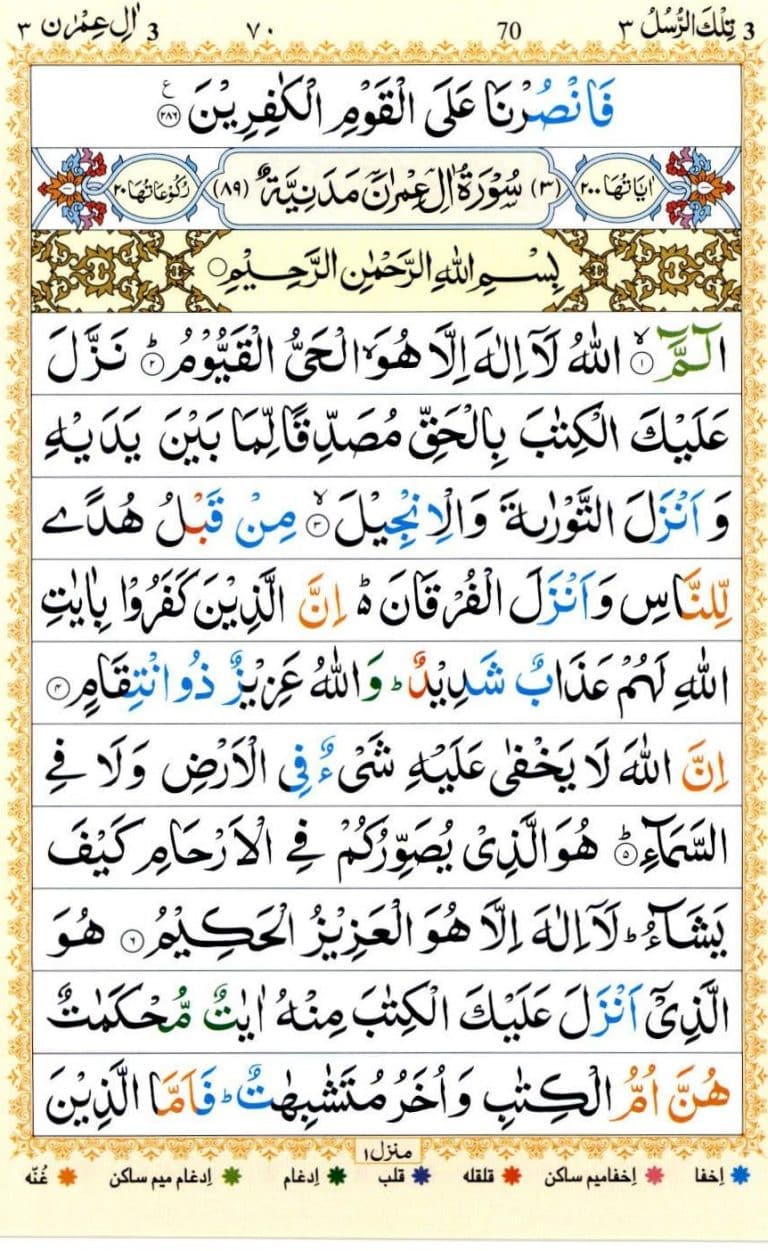 3 تِلْكَ الرُّسُلُ ٣ 70 ٧٠ 3 اٰلِ عِمْرٰن ٣
فَانْصُرْنَا عَلَى الْقَوْمِ الْكٰفِرِيْنَ ﴿٢٨٦﴾ ع
اٰيَاتُهَا ٢٠٠ (٣) سُوْرَةُ اٰلِ عِمْرٰنَ مَدَنِيَّةٌ (٨٩) رُكُوْعَاتُهَا ٢٠
بِسْمِ اللّٰهِ الرَّحْمٰنِ الرَّحِيْمِ
الٓمَّٓ ۙ﴿١﴾ اللّٰهُ لَاۤ اِلٰهَ اِلَّا هُوَ ۙ الْحَىُّ الْقَيُّوْمُ ؕ﴿٢﴾ نَزَّلَ
عَلَيْكَ الْكِتٰبَ بِالْحَقِّ مُصَدِّقًا لِّمَا بَيْنَ يَدَيْهِ
وَ اَنْزَلَ التَّوْرٰىةَ وَالْاِنْجِيْلَ ۙ﴿٣﴾ مِنْ قَبْلُ هُدًے
لِّلنَّاسِ وَ اَنْزَلَ الْفُرْقَانَ ؕ اِنَّ الَّذِيْنَ كَفَرُوْا بِاٰيٰتِ
اللّٰهِ لَهُمْ عَذَابٌ شَدِيْدٌ ؕ وَاللّٰهُ عَزِيْزٌ ذُو انْتِقَامٍ ﴿٤﴾
اِنَّ اللّٰهَ لَا يَخْفٰى عَلَيْهِ شَىْءٌ فِى الْاَرْضِ وَلَا فِے
السَّمَآءِ ؕ﴿٥﴾ هُوَ الَّذِىْ يُصَوِّرُكُمْ فِے الْاَرْحَامِ كَيْفَ
يَشَآءُ ؕ لَاۤ اِلٰهَ اِلَّا هُوَ الْعَزِيْزُ الْحَكِيْمُ ﴿٦﴾ هُوَ
الَّذِىْۤ اَنْزَلَ عَلَيْكَ الْكِتٰبَ مِنْهُ اٰيٰتٌ مُّحْكَمٰتٌ
هُنَّ اُمُّ الْكِتٰبِ وَ اُخَرُ مُتَشٰبِهٰتٌ ؕ فَاَمَّا الَّذِيْنَ
منزل ١
اِخفا اِخفامیم ساکن قلقله قلب اِدغام اِدغام میم ساکن غُنّه